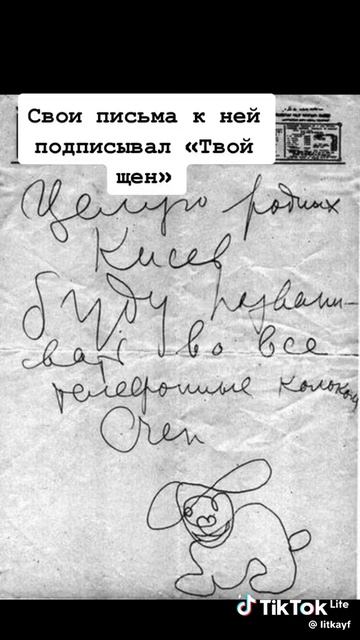 Свои письма к ней
подписывал «Твой
щен»
Целую родных
Кисев
буду названи-
вать во все
телефонные колокол
Счен
TikTok Lite
@ litkayf